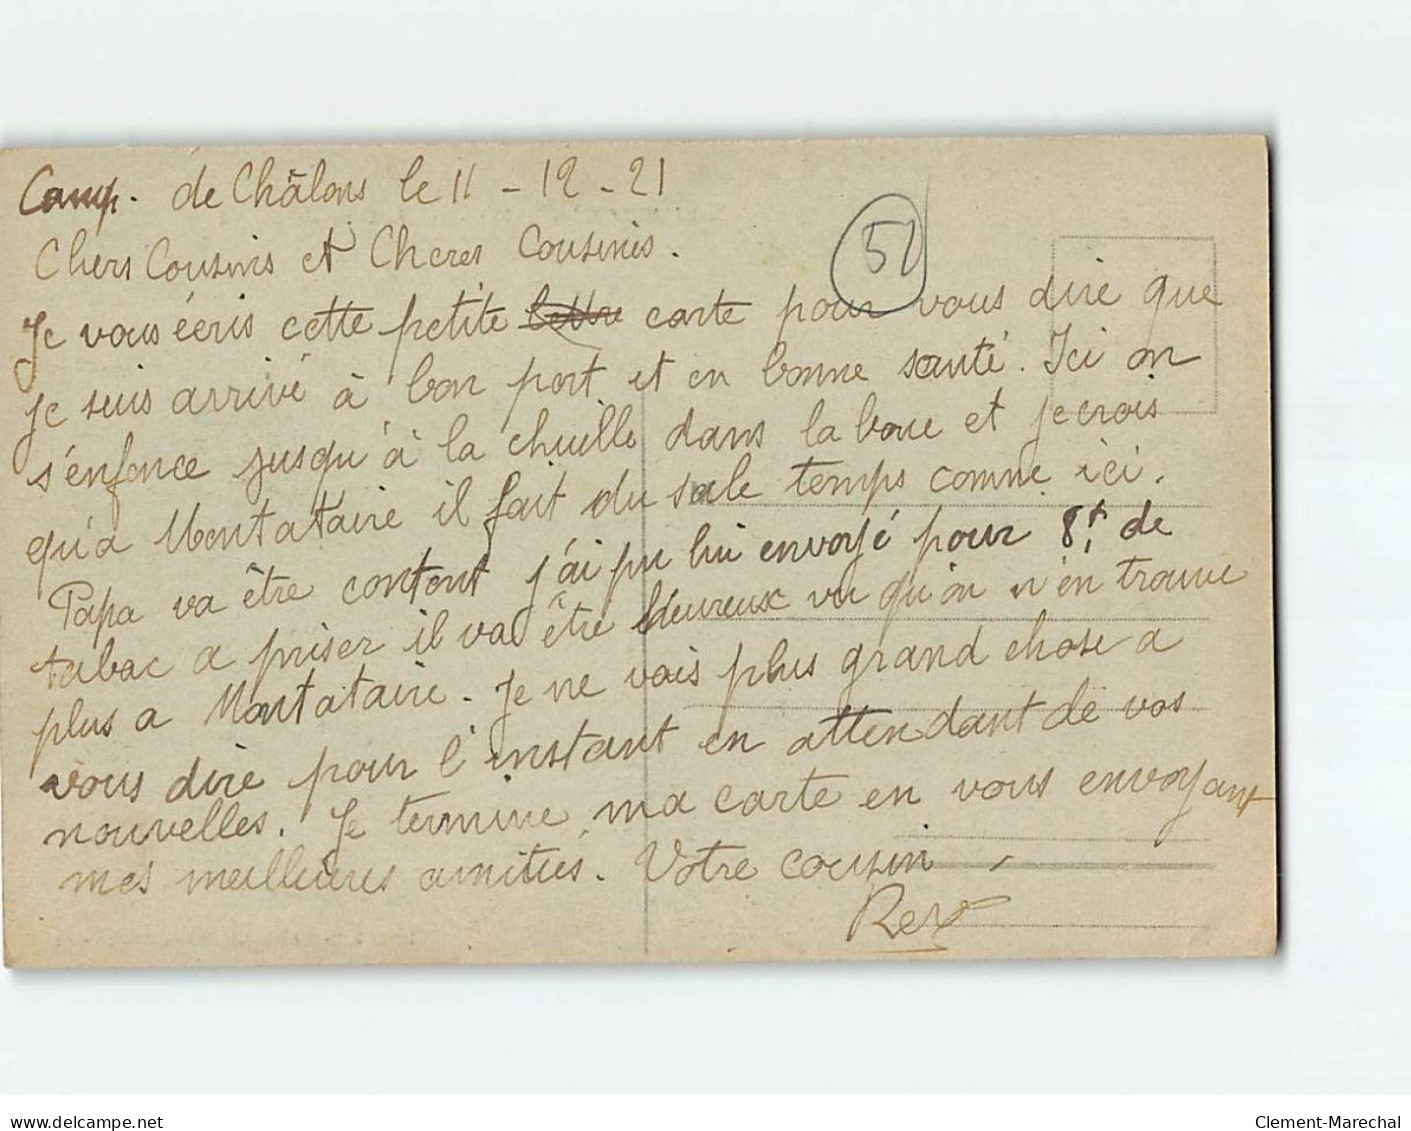 Camp. de Châlons le 11 - 12 - 21
Chers Cousins et Chères Cousines.
51
Je vous écris cette petite lettre carte pour vous dire que
je suis arrivé à bon port et en bonne santé. Ici on
s'enfonce jusqu'à la cheville dans la boue et je crois
qu'a Montataire il fait du sale temps comme ici.
Papa va être content j'ai pu lui envoyé pour 8f. de
tabac a priser il va être heureux vu qu'on n'en trouve
plus a Montataire. Je ne vois plus grand chose a
vous dire pour l'instant en attendant de vos
nouvelles. Je termine ma carte en vous envoyant
mes meilleures amitiés. Votre cousin
delcampe.net
Clement-Marechal